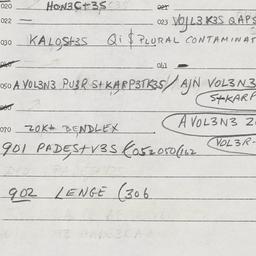 020 HON3C+3S 021
022 — 023 VOJL3K3S QAPS
030 KALOS+3S QI $ PLURAL CONTAMINAT
041
050 A VOL3N3 PU3R S+KARP3TK3S / AJN VOL3N3
S+KARP
070 ZOK+ BENDLEX A VOL3N3 Z
901 PADES+V3S (052 050 (162 VOL3R-
902 LENGE (306